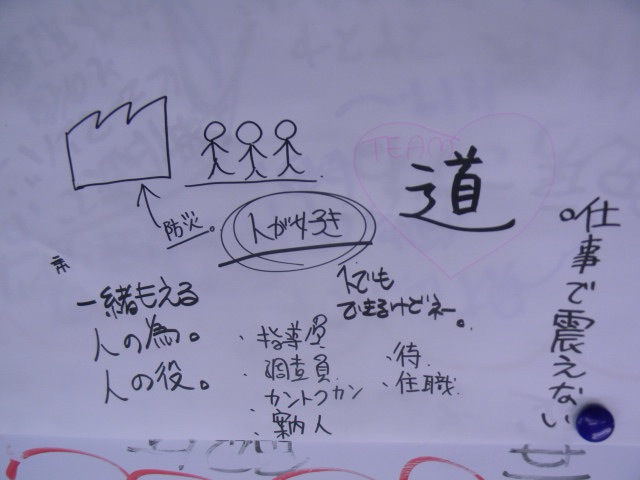 TEAM
道
防災。
人が好き
仕事で震えない。
一緒もえる
人の為。
人の役。
1人でも
できるけどネー。
・指導員
・調査員
・カントクカン
・案内人
・侍
・住職